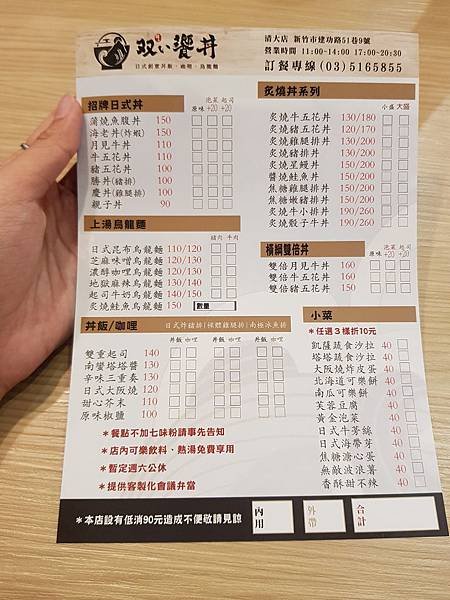 双い饗丼
日式創意丼飯．咖哩．烏龍麵
清大店 新竹市建功路51巷9號
營業時間 11:00~14:00 17:00~20:30
訂餐專線 (03)5165855
招牌日式丼
原味 泡菜+20 起司+20
蒲燒魚腹丼 150
海老丼(炸蝦) 150
月見牛丼 110
牛五花丼 110
豬五花丼 100
勝丼(豬排) 100
慶丼(雞腿排) 100
親子丼 90
上湯烏龍麵
豬肉 牛肉
日式昆布烏龍麵 110/120
芝麻味噌烏龍麵 120/130
濃醇咖哩烏龍麵 120/130
地獄麻辣烏龍麵 120/130
起司牛奶烏龍麵 140/150
炙燒鮭魚烏龍麵 150 數量
丼飯/咖哩
日式炸豬排|裸體雞腿排|南極冰魚排
丼飯 咖哩 丼飯 咖哩 丼飯 咖哩
雙重起司 140
南蠻塔塔醬 130
辛味三重奏 130
日式大阪燒 110
甜心芥末 110
原味椒鹽 100
＊餐點不加七味粉請事先告知
＊店內可樂飲料、熱湯免費享用
＊暫定週六公休
＊提供客製化會議弁當
炙燒丼系列
小盛 大盛
炙燒牛五花丼 130/180
炙燒豬五花丼 120/170
炙燒雞腿排丼 130/200
炙燒豬排丼 130/200
炙燒星鰻丼 150/200
醬燒鮭魚丼 150/200
焦糖雞腿排丼 150/200
焦糖嫩豬排丼 150/200
炙燒牛小排丼 190/260
炙燒骰子牛丼 190/260
橫綱雙倍丼
原味 泡菜+20 起司+20
雙倍月見牛丼 160
雙倍牛五花丼 160
雙倍豬五花丼 150
小菜
＊任選3樣折10元
凱薩蔬食沙拉 40
塔塔蔬食沙拉 40
大阪燒炸皮蛋 40
北海道可樂餅 40
南瓜可樂餅 40
芙蓉豆腐 40
黃金泡菜 40
日式牛蒡絲 40
日式海帶芽 40
焦糖溏心蛋 40
無敵波浪薯 40
香酥甜不辣 40
＊本店設有低消90元造成不便敬請見諒
內用
外帶
合計